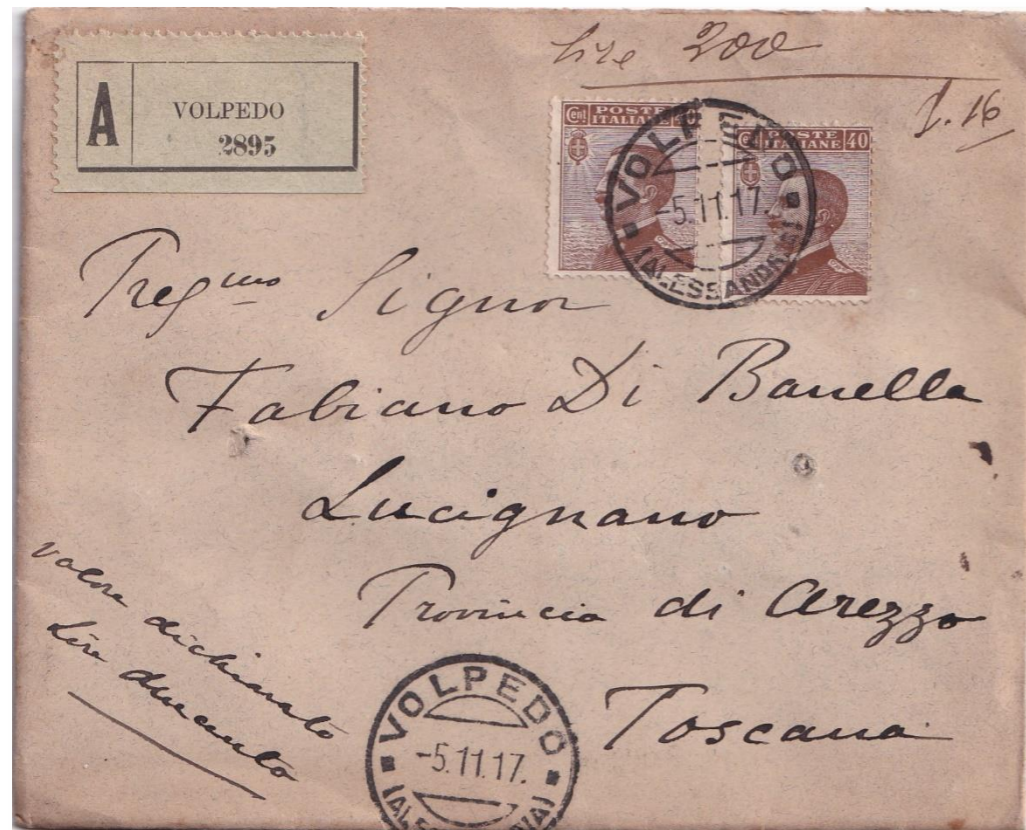 lire 200
g. 16
A
VOLPEDO
2895
Cent POSTE 40
ITALIANE
Cent POSTE 40
ITALIANE
VOLPEDO
-5.11.17.
(ALESSANDRIA)
Preg.mo Signor
Fabiano Di Banella
Lucignano
Provincia di Arezzo
Toscana
valore dichiarato
lire duecento
VOLPEDO
-5.11.17.
(ALESSANDRIA)